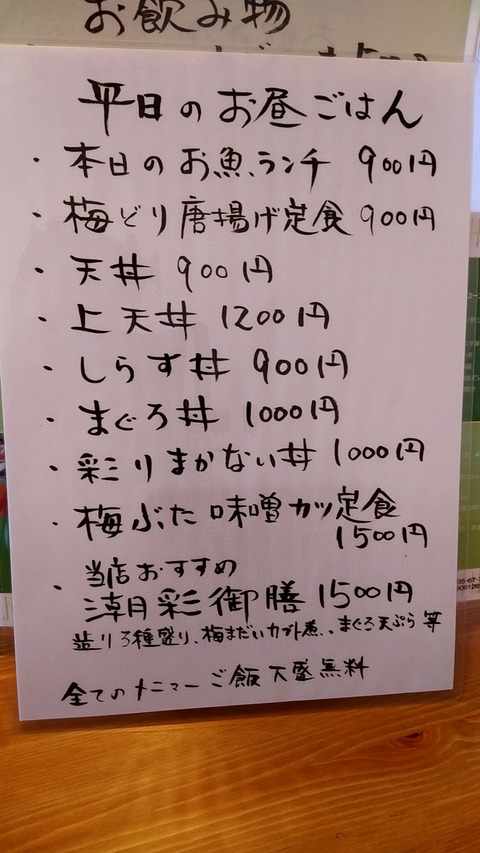 お飲み物
平日のお昼ごはん
・本日のお魚ランチ 900円
・梅どり唐揚げ定食 900円
・天丼 900円
・上天丼 1200円
・しらす丼 900円
・まぐろ丼 1000円
・彩りまかない丼 1000円
・梅ぶた味噌カツ定食
1500円
・当店おすすめ
潮彩御膳 1500円
造り3種盛り、梅まだいカブト煮、まぐろ天ぷら等
全てのメニューご飯大盛無料